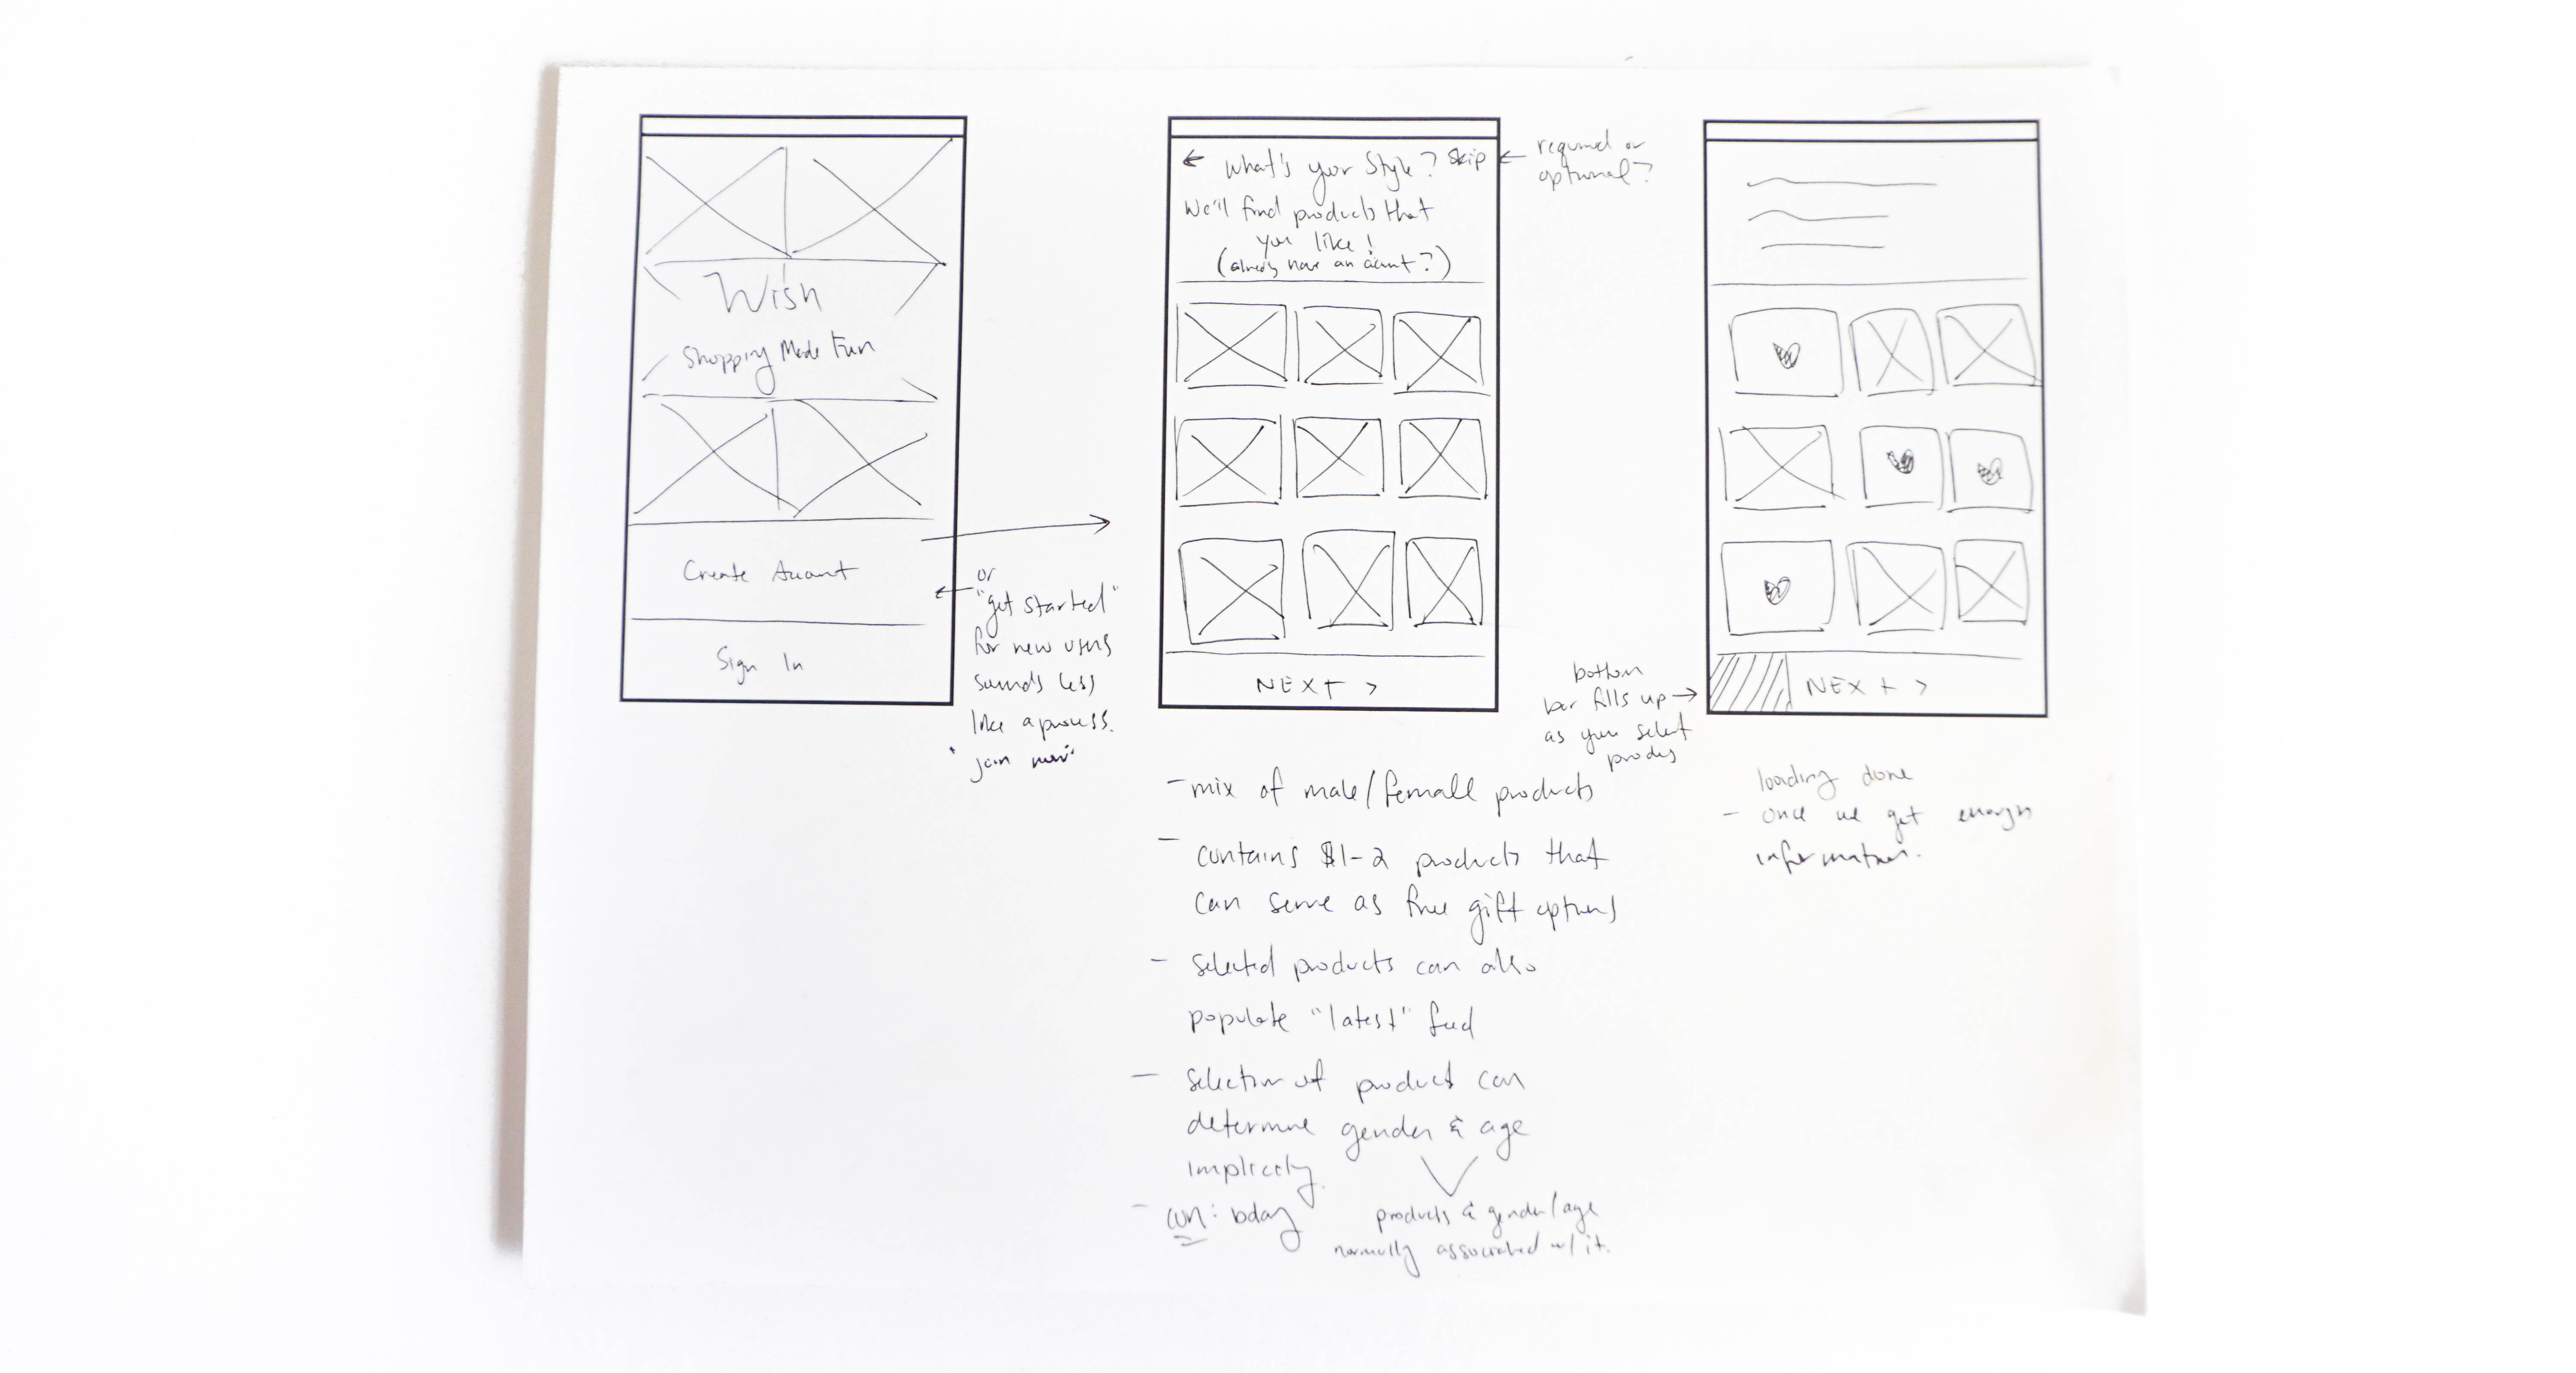 Wish
Shopping Made Fun
Create Account
Sign In
or
"get started"
for new users
sounds less
like a process.
"join now"
← What's your Style? Skip
We'll find products that
you like!
(already have an account?)
NEXT >
← required or
optional?
- mix of male/female products
- contains $1-2 products that
can serve as free gift options
- selected products can also
populate "latest" feed
- selection of product can
determine gender & age
implicitly.
- con: bday
products & gender/age
normally associated w/ it.
bottom
bar fills up →
as you select
NEXT >
loading done
- once we get enough
information.